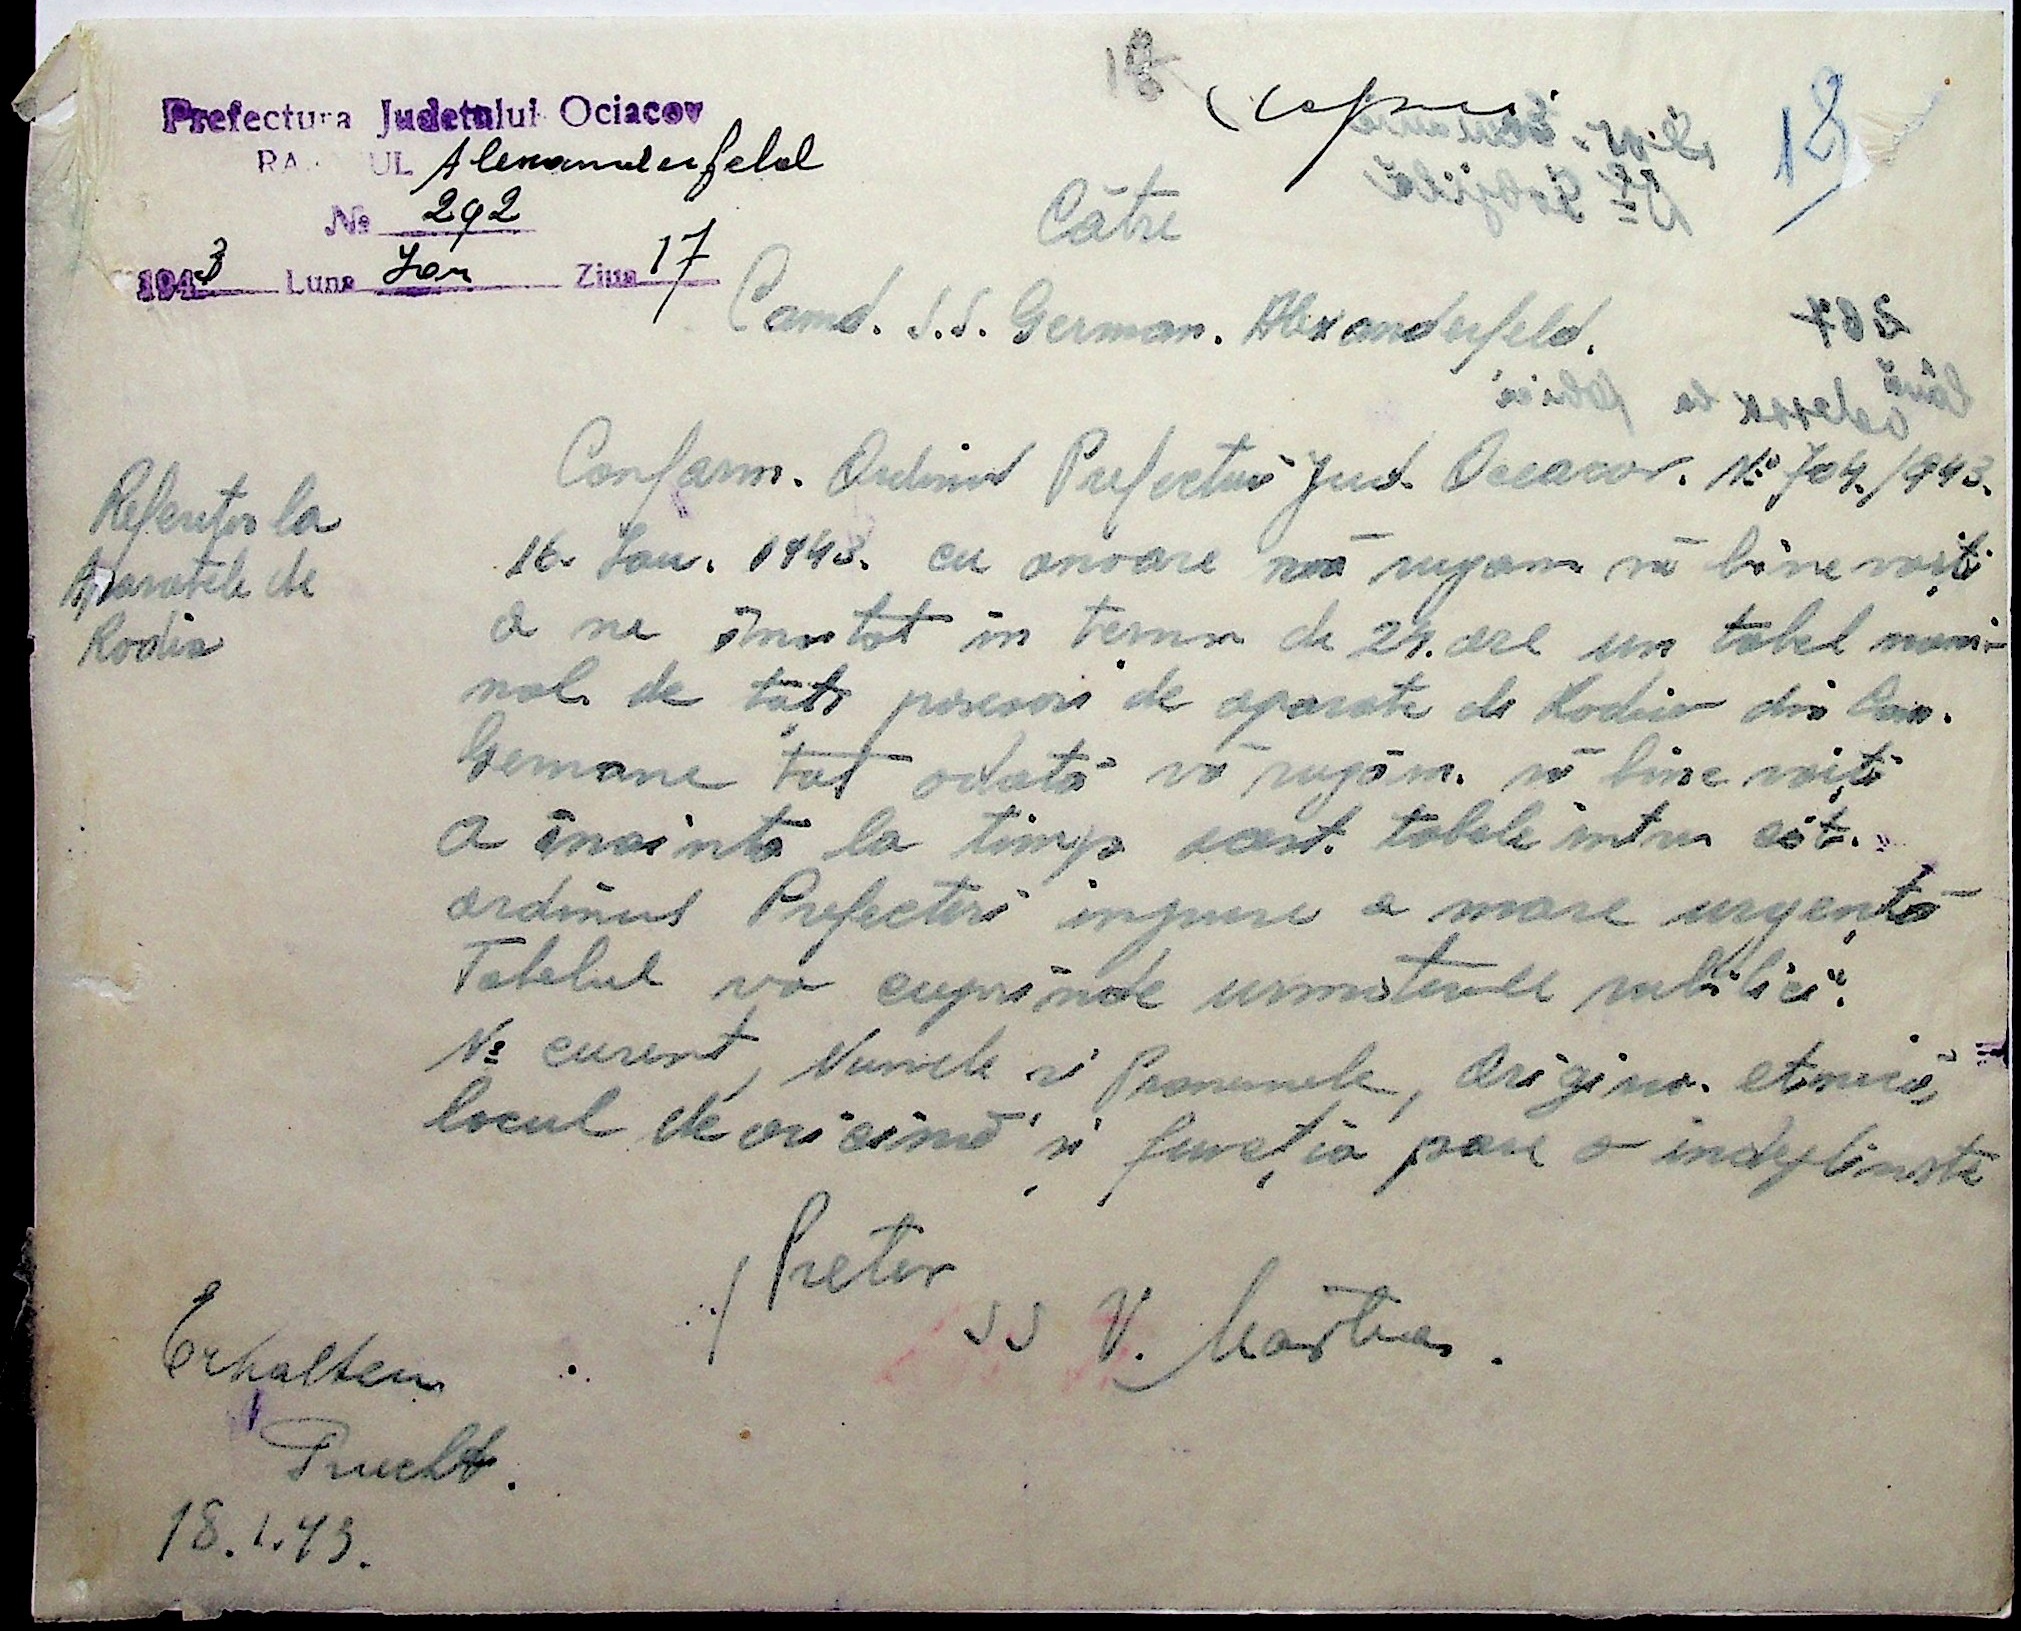 18
Copie
18
Prefectura Judetului Ociacov
RA UL Alexanderfeld
№ 292
1943 Luna Ian Ziua 17
Către
Comd. S.S. German. Alexanderfeld.
Referitor la
Aparatele de
Radio
Conform. Ordinul Prefecturi Jud. Oceacov. № 704/943.
16. Ian. 1943. cu onoare vă rugam să bine voiți
a ne în termen de 24. ore un tabel nomi-
nal de toți posesori de aparate de Radio din Com.
Germane tot odată vă rugăm. să bine voiți
a înainta la timp acest. tabele intru cât.
ordinul Prefecturi impune o mare urgență
Tabelul va cuprinde urmatoarele rubilici:
№ curent, Numele si Pronumele, Origina. etnică,
locul de și funcția pare o indeplineste
Pretor
SS V.
Erhalten
18.1.43.